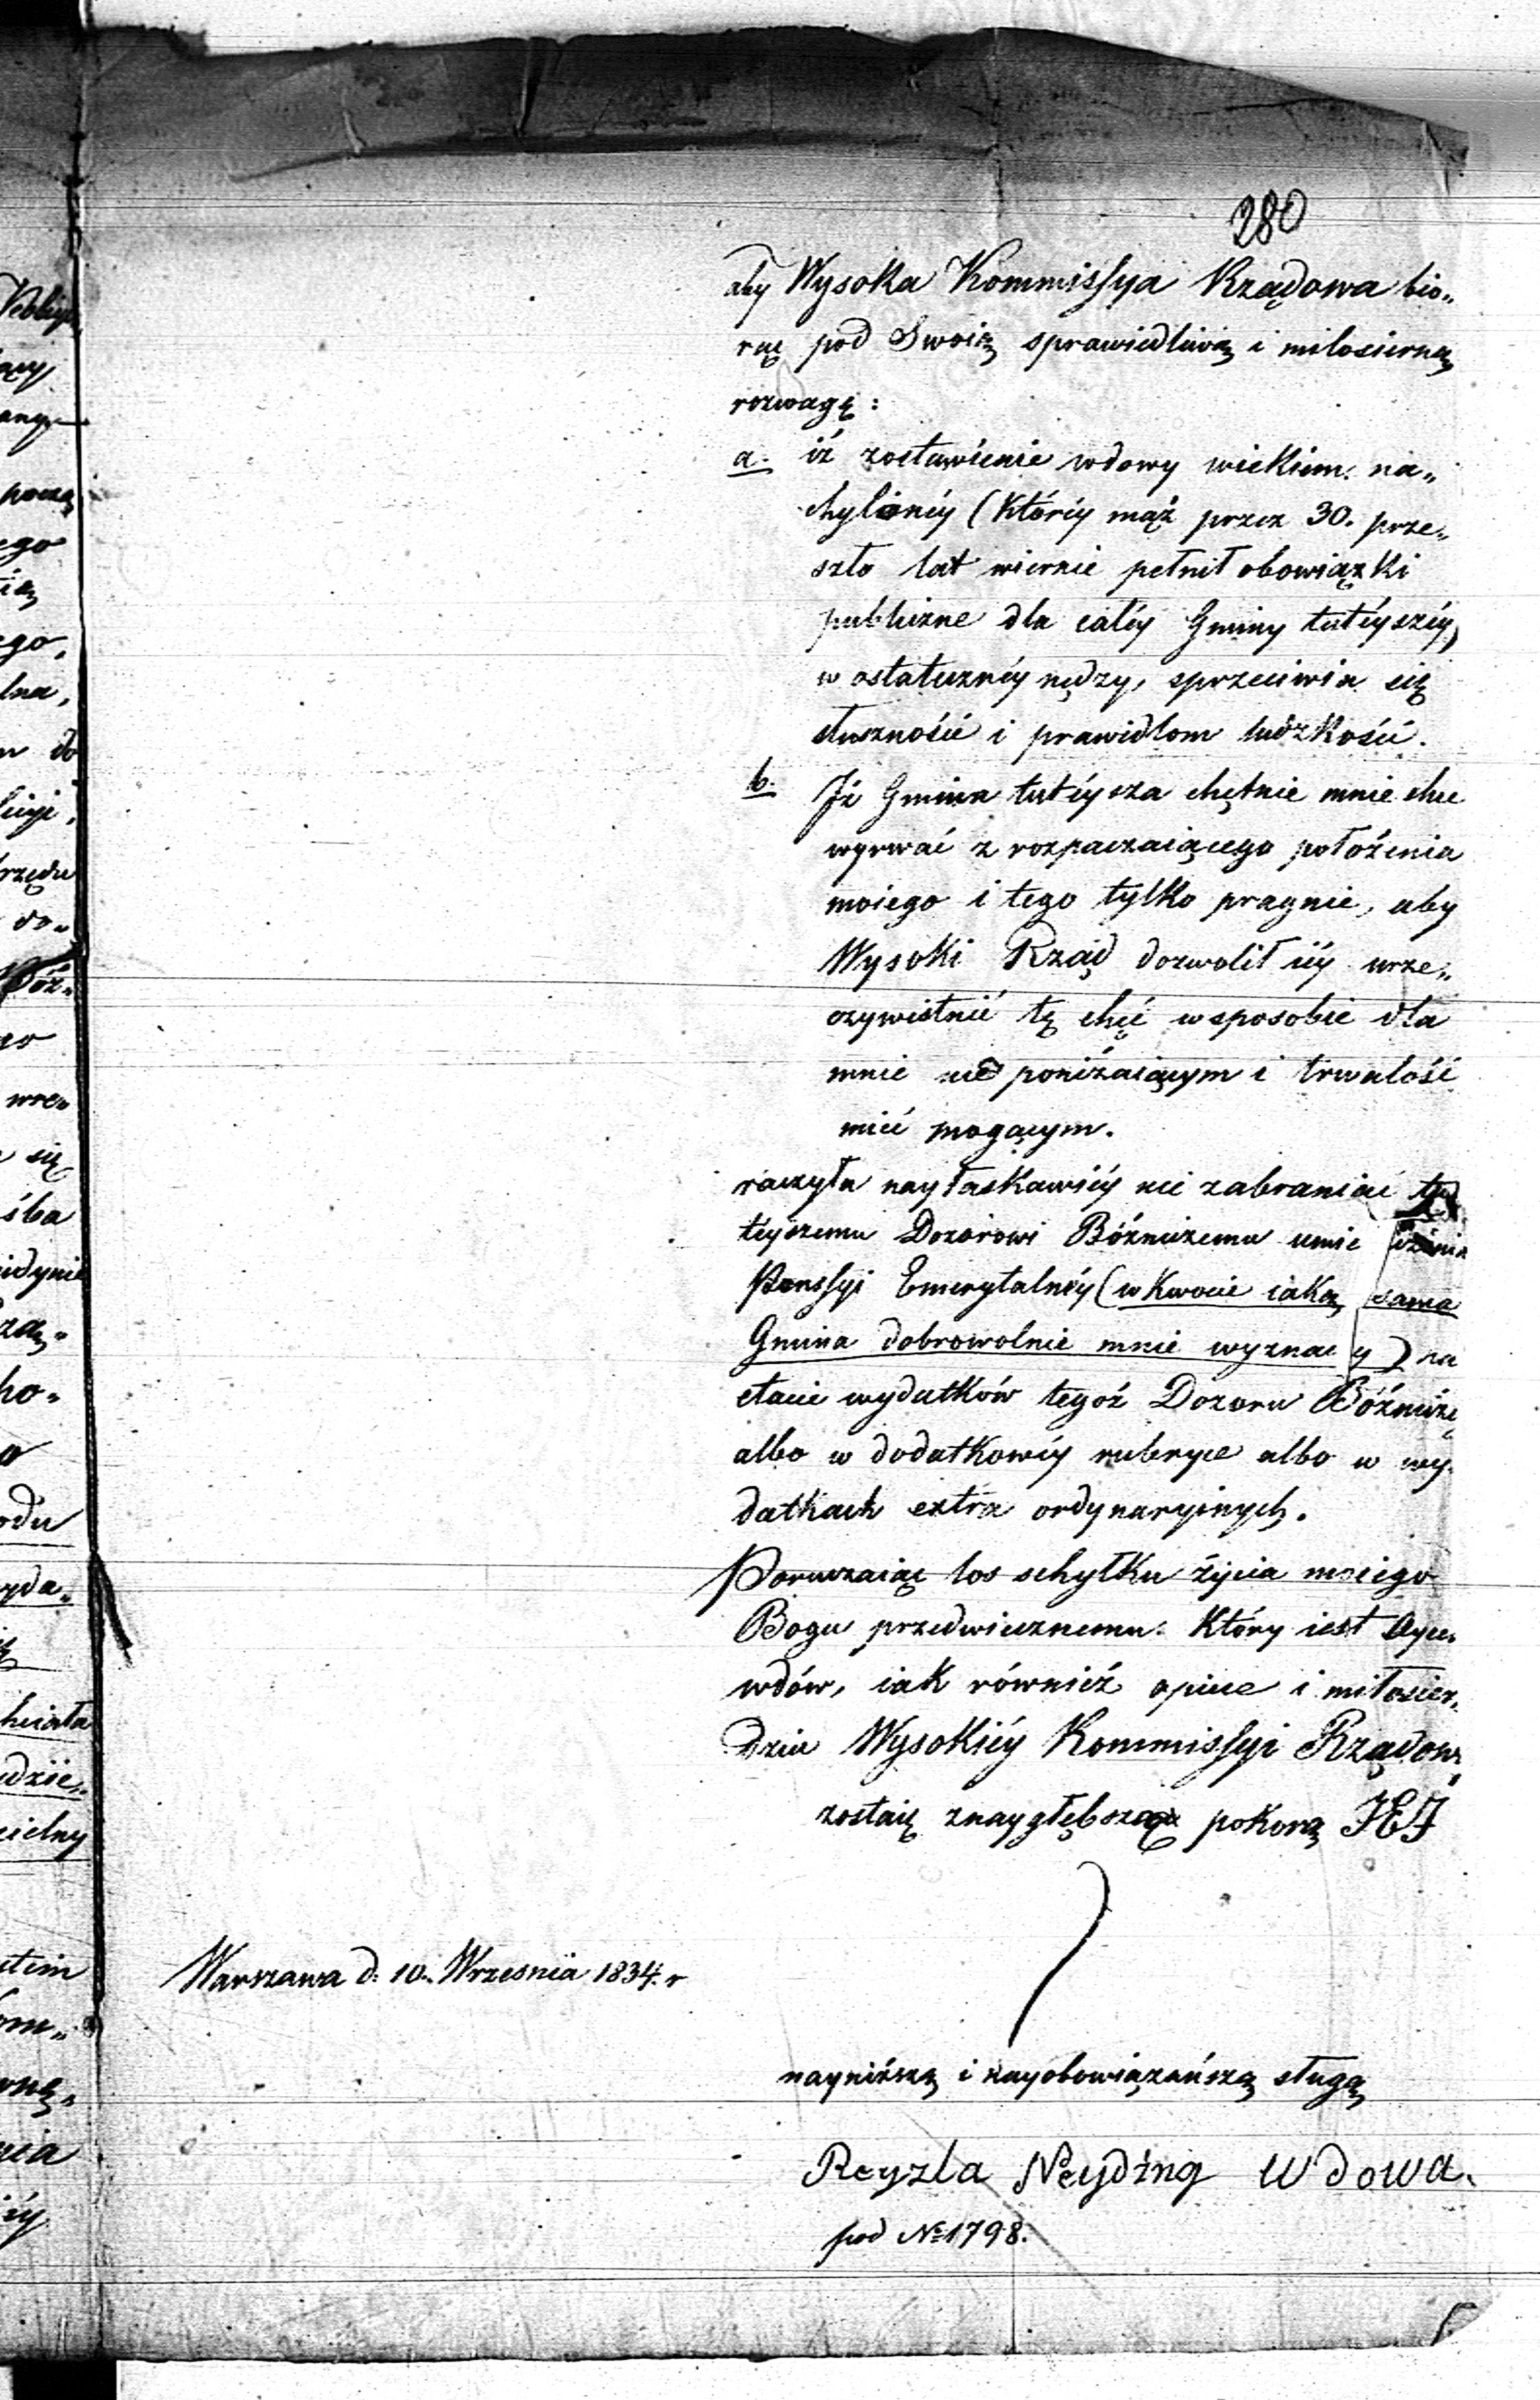 280
aby Wysoka Kommissya Rządowa bio„
rąc pod Swoią sprawiedliwą i miłosierną
rozwagę:
a. iż zostawienie wdowy wiekiem na„
chylonéy (któréy mąż przez 30. prze„
szło lat wiernie pełnił obowiązki
publiczne dla całéy Gminy tutéyszéy)
w ostatecznéy nędzy, sprzeciwia się
słuszności i prawidłom ludzkości.
b. Iż Gmina tutéysza chętnie mnie chce
wyrwać z rozpaczaiącego położenia
moiego i tego tylko pragnie, aby
Wysoki Rząd dozwolił iéy urze„
czywistnić tę chęć w sposobie dla
mnie nie poniżaiącym i trwałość
mieć mogącym.
raczyła nayłaskawiéy nie zabraniać tu
téyszemu Dozorowi Bóżniczemu umie
Penssyi Emerytalnéy (w kwocie iaką sama
Gmina dobrowolnie mnie wyznaczy) na
etacie wydatków tegoż Dozoru Bóżnicze
albo w dodatkowéy rubryce albo w wy„
datkach extra ordynaryinych.
Poruczaiąc los schyłku życia moiego
Bogu przedwiecznemu. Który iest Oyce„
wdów, iak również opiece i miłosier„
dziu Wysokiéy Kommissyi Rządow„
zostaię z naygłębszą pokorą JEJ
Warszawa d: 10. Wrzesnia 1834. r
nayniższą i nayobowiązańszą sługą
Reyzla Neyding Wdowa.
pod № 1798.